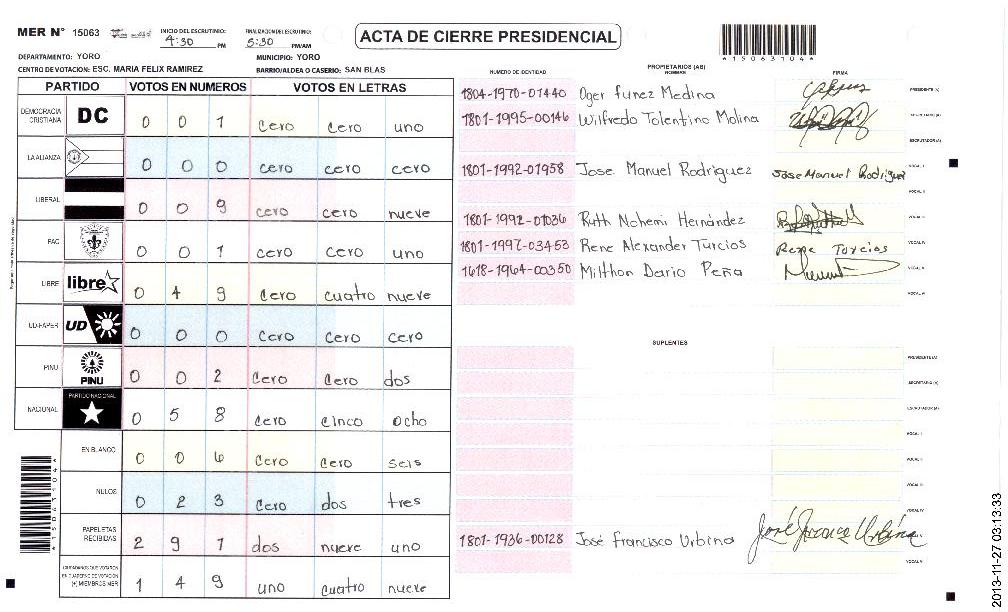 MER N° 15063 INICIO DEL ESCRUTINIO: 4:30 PM FINALIZACION DEL ESCRUTINIO: 5:30 PM/AM ACTA DE CIERRE PRESIDENCIAL
DEPARTAMENTO: YORO MUNICIPIO: YORO *15063104*
CENTRO DE VOTACION: ESC. MARIA FELIX RAMIREZ BARRIO/ALDEA O CASERIO: SAN BLAS
PARTIDO VOTOS EN NUMEROS VOTOS EN LETRAS
DEMOCRACIA CRISTIANA DC 0 0 1 cero cero uno
LA ALIANZA 0 0 0 cero cero cero
LIBERAL 0 0 9 cero cero nueve
PAC 0 0 1 cero cero uno
LIBRE libre 0 4 9 cero cuatro nueve
UD-FAPER UD 0 0 0 cero cero cero
PINU PINU 0 0 2 cero cero dos
NACIONAL PARTIDO NACIONAL 0 5 8 cero cinco ocho
EN BLANCO 0 0 6 cero cero seis
NULOS 0 2 3 cero dos tres
PAPELETAS RECIBIDAS 2 9 1 dos nueve uno
CIUDADANOS QUE VOTARON EN CUADERNO DE VOTACION (+) MIEMBROS MER 1 4 9 uno cuatro nueve
*15063104*
PROPIETARIOS (AS)
NUMERO DE IDENTIDAD NOMBRE FIRMA
1804-1970-01440 Oger funez Medina PRESIDENTE (A)
1801-1995-00146 Wilfredo Tolentino Molina SECRETARIO (A)
ESCRUTADOR (A)
1801-1992-01958 Jose Manuel Rodriguez Jose Manuel Rodriguez VOCAL I
VOCAL II
1801-1992-01036 Ruth Nohemi Hernández VOCAL III
1801-1997-03453 Rene Alexander Turcios Rene Turcios VOCAL IV
1618-1964-00350 Milthon Dario Peña VOCAL V
VOCAL VI
SUPLENTES
PRESIDENTE (A)
SECRETARIO (A)
ESCRUTADOR (A)
VOCAL I
VOCAL II
VOCAL III
VOCAL IV
1801-1936-00128 José Francisco Urbina José Franco Urbina
VOCAL VI
2013-11-27 03:13:33